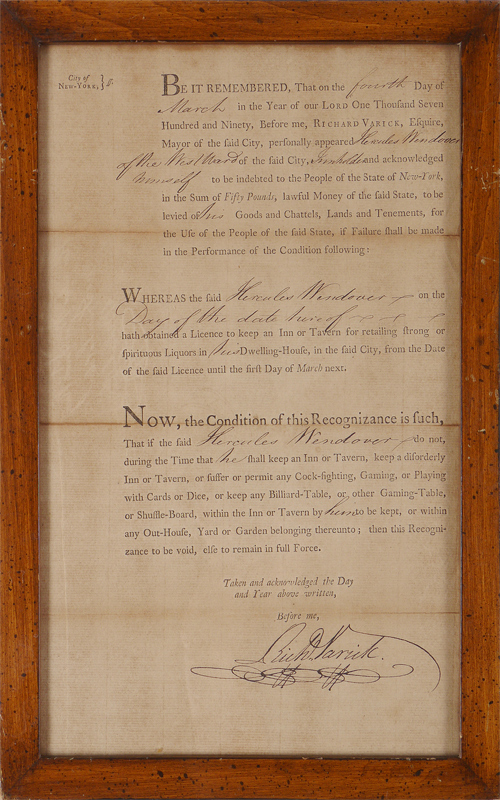 City of
NEW-YORK, } ss.
BE IT REMEMBERED, That on the fourth Day of
March in the Year of our LORD One Thousand Seven
Hundred and Ninety, Before me, RICHARD VARICK, Esquire,
Mayor of the said City, personally appeared Hercules Windover
of the West Ward of the said City, Innholder and acknowledged
himself to be indebted to the People of the State of New-York,
in the Sum of Fifty Pounds, lawful Money of the said State, to be
levied of his Goods and Chattels, Lands and Tenements, for
the Use of the People of the said State, if Failure shall be made
in the Performance of the Condition following:
WHEREAS the said Hercules Windover on the
Day of the date hereof
hath obtained a Licence to keep an Inn or Tavern for retailing strong or
spirituous Liquors in his Dwelling-House, in the said City, from the Date
of the said Licence until the first Day of March next.
NOW, the Condition of this Recognizance is such,
That if the said Hercules Windover do not,
during the Time that he shall keep an Inn or Tavern, keep a disorderly
Inn or Tavern, or suffer or permit any Cock-fighting, Gaming, or Playing
with Cards or Dice, or keep any Billiard-Table, or other Gaming-Table,
or Shuffle-Board, within the Inn or Tavern by him to be kept, or within
any Out-House, Yard or Garden belonging thereunto; then this Recogni-
zance to be void, else to remain in full Force.
Taken and acknowledged the Day
and Year above written,
Before me,
Richd. Varick.